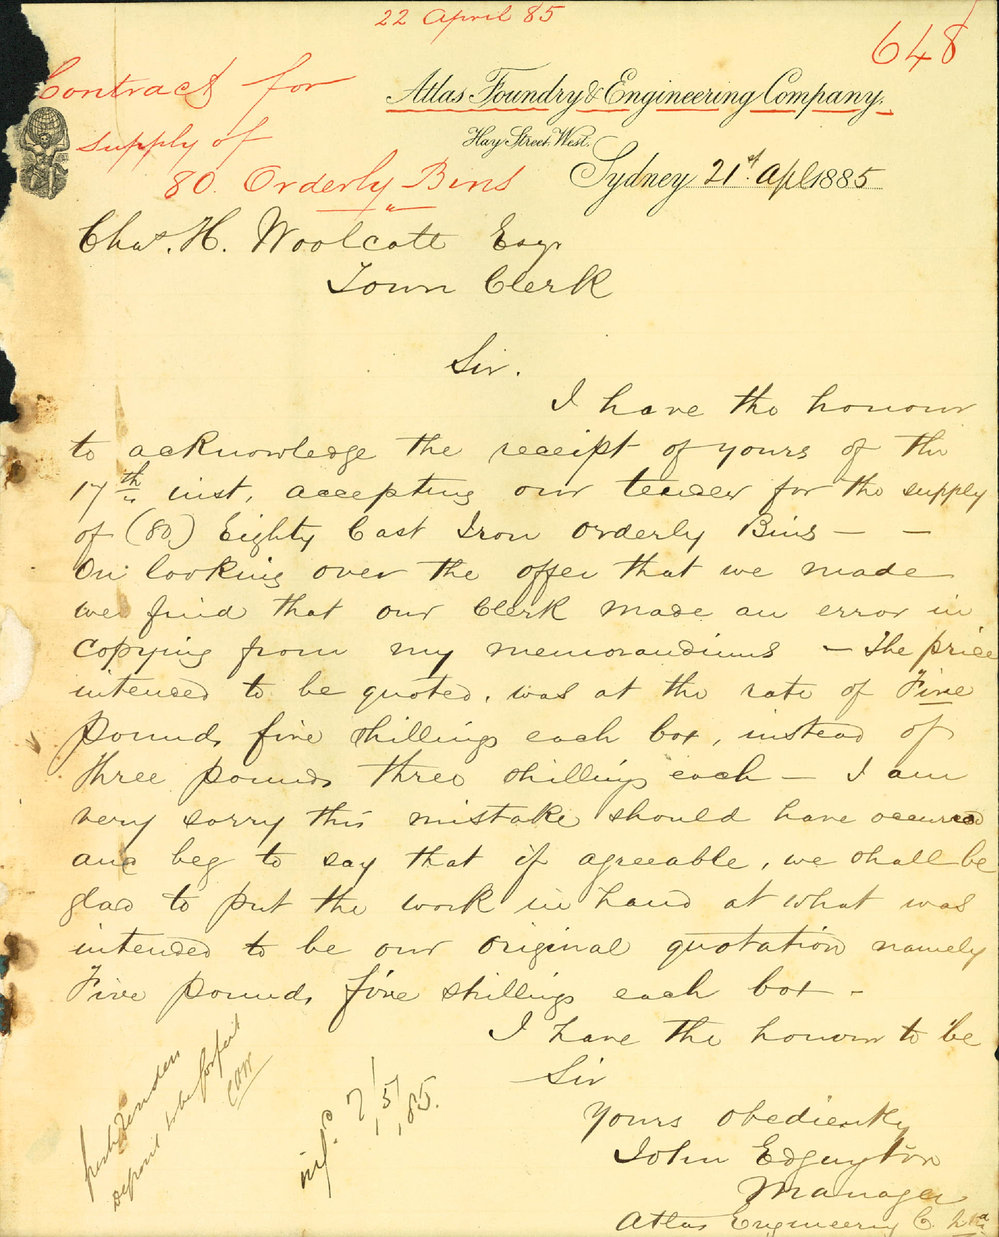 22 April 85
648
Contract for
supply of
80. Orderly Bins
Atlas Foundry & Engineering Company.
Hay Street West.
Sydney 21st Apl 1885
Chas. H. Woolcott Esqr
Town Clerk
Sir.
I have the honour
to acknowledge the receipt of yours of the
17th inst, accepting our tender for the supply
of (80) Eighty Cast Iron Orderly Bins — —
On looking over the offer that we made
we find that our Clerk made an error in
Copying from my memorandums — The price
intended to be quoted, was at the rate of Five
pounds five shillings each box, instead of
three pounds three shillings each — I am
very sorry this mistake should have occurred
and beg to say that if agreeable, we shall be
glad to put the work in hand at what was
intended to be our original quotation namely
Five pounds five shillings each box —
I have the honour to be
Sir
Yours obediently
John
Manager
Atlas Engineering Co. Ltd
fresh tenders
deposit to be forfeit
CHW
infd. 7/5/85.